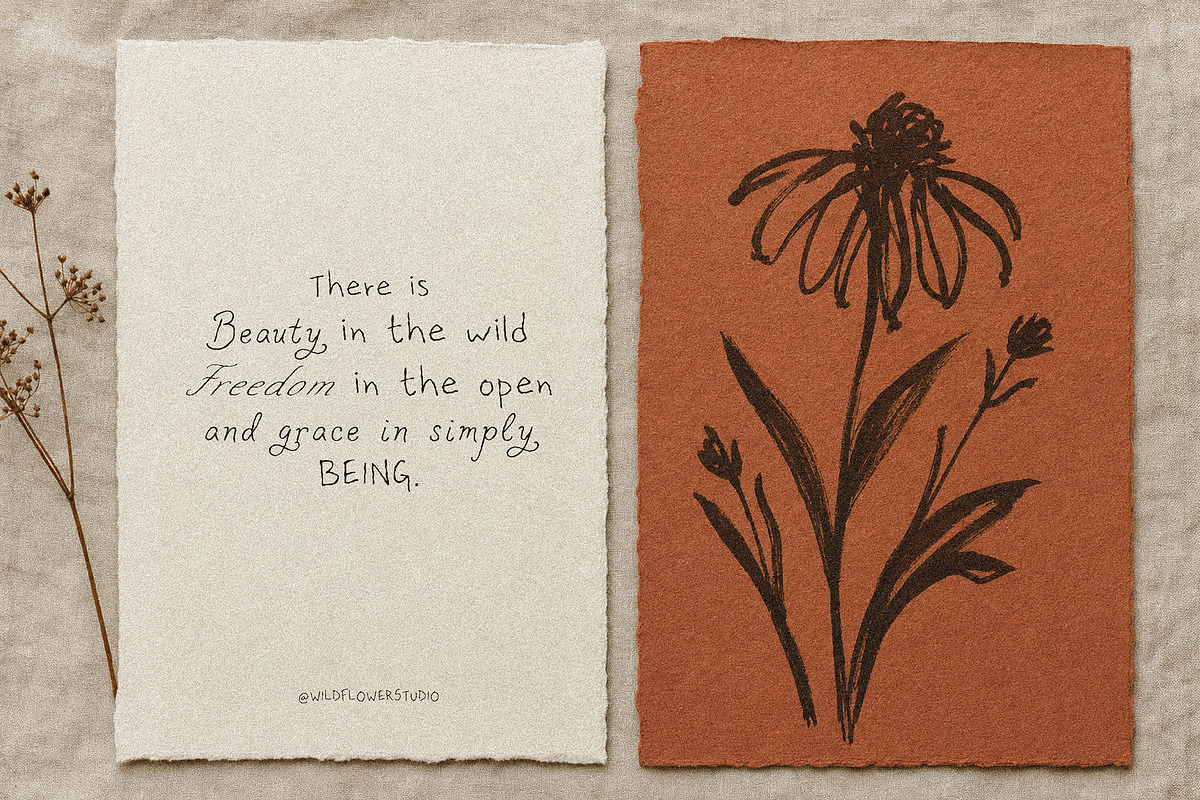 There is
Beauty in the wild
Freedom in the open
and grace in simply
BEING.
@WILDFLOWERSTUDIO